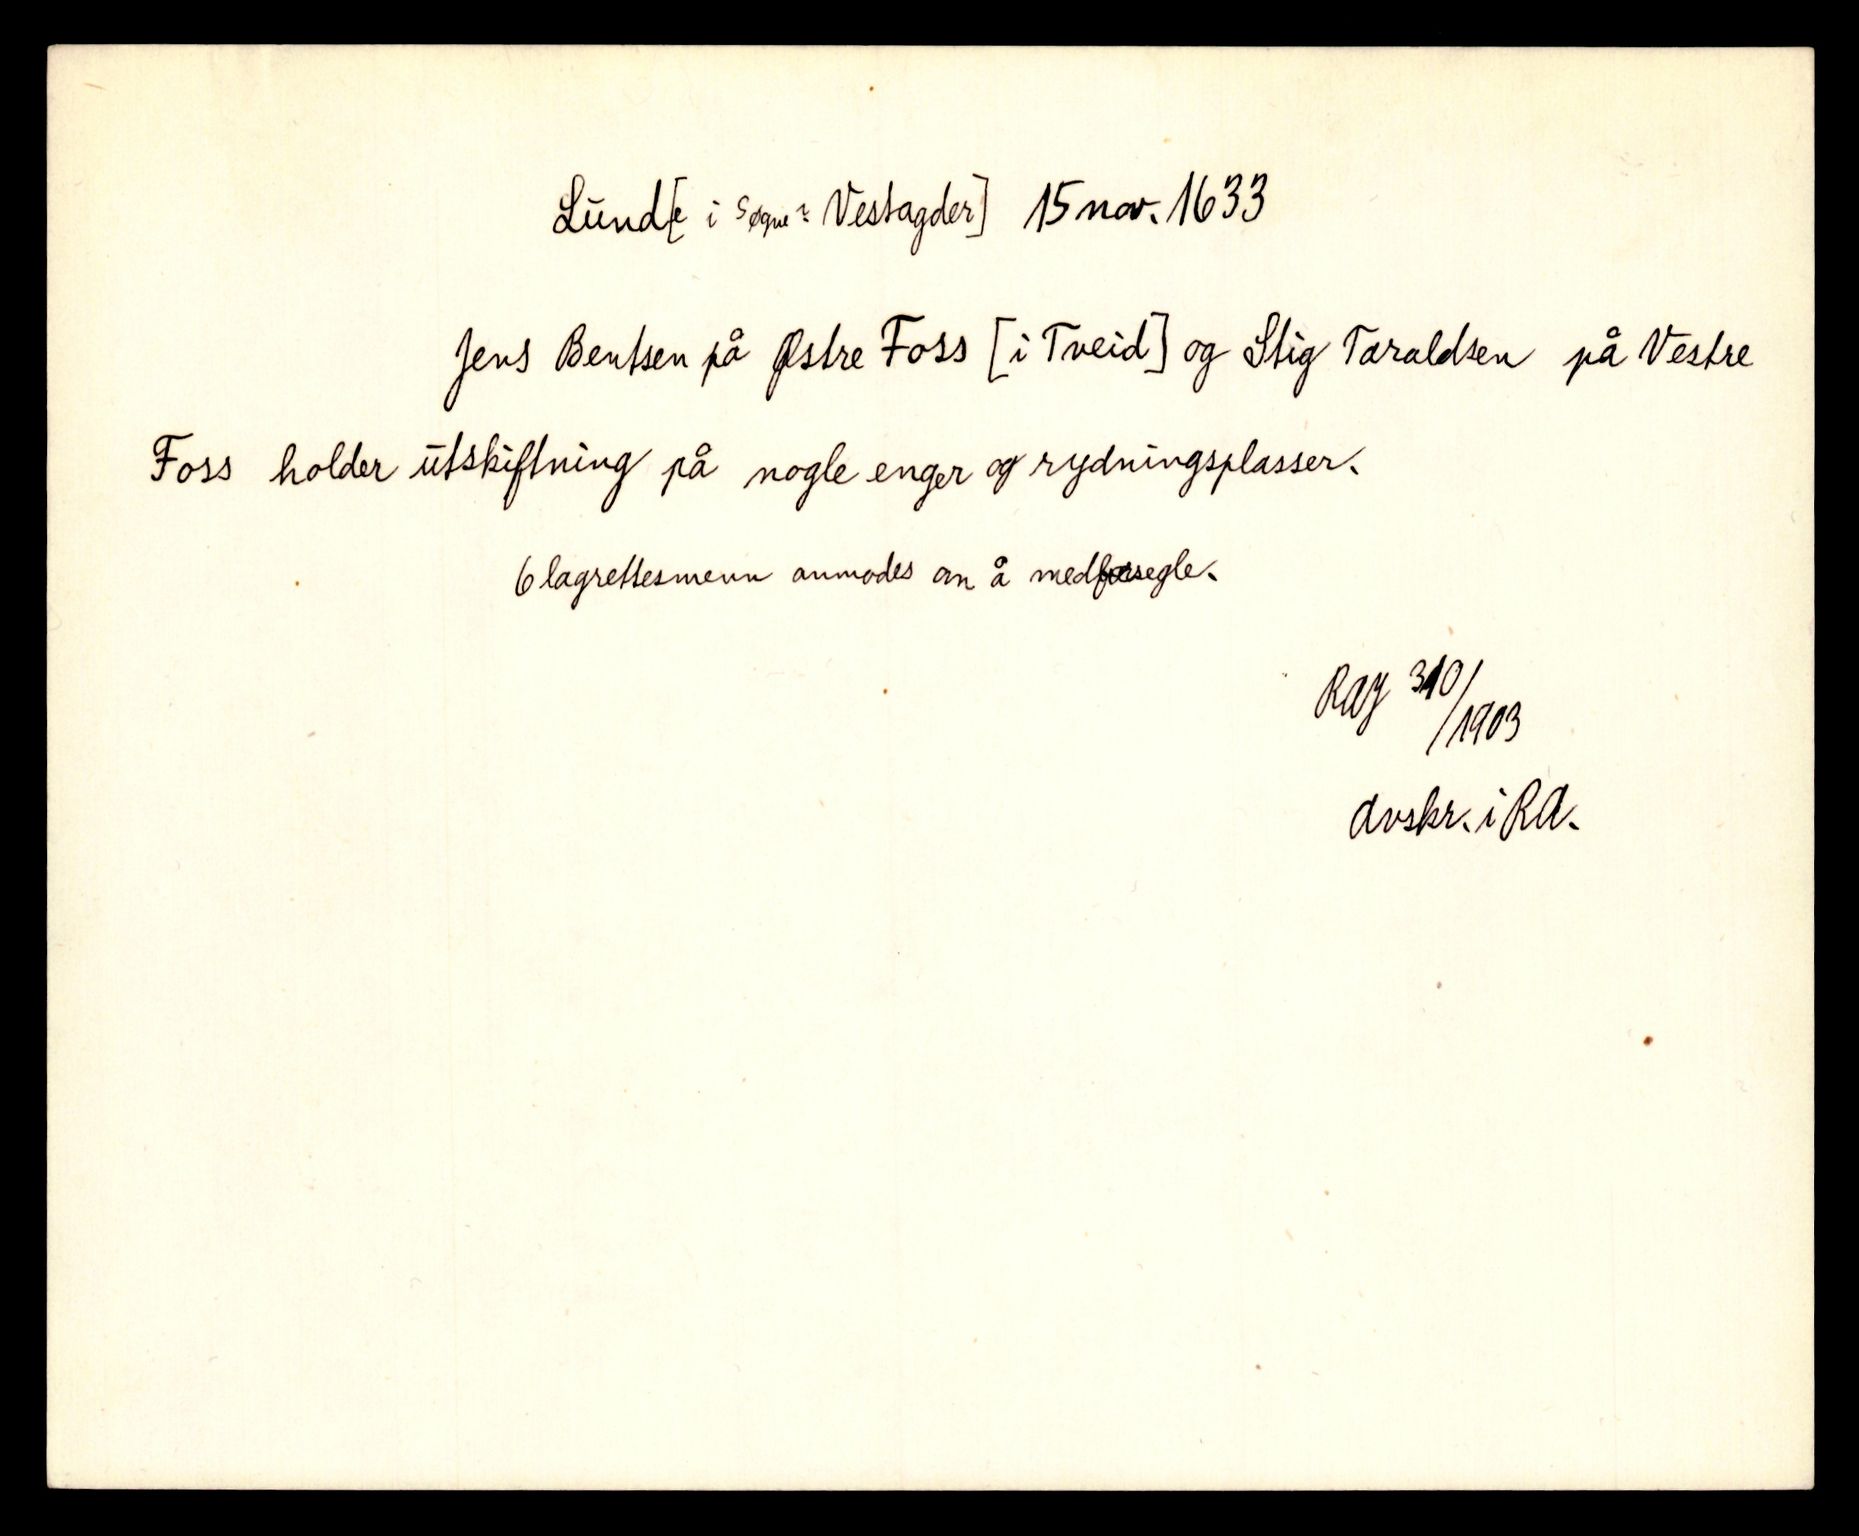 Lund[e i Søgne? Vestagder] 15 nov. 1633
Jens Bentsen på Østre Foss [i Tveid] og Stig Taraldsen på Vestre
Foss holder utskiftning på nogle enger og rydningsplasser.
6 lagrettesmenn anmodes om å medforsegle.
RAJ 310/
/1903
Avskr. i RA.